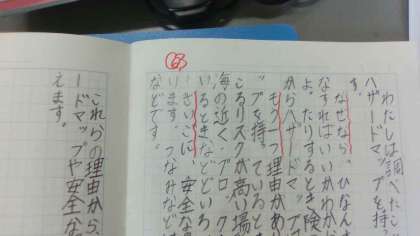 わたしは調べたこ
ハザードマップを持
す。
なぜなら、ひなん
なすればいいかわか
よ。たりするとき険
からハザードマップ
もう一つ理由があ
ップを持っていると
こるリスクが高い場
海の近く、ブロック
いるときなどどいろ
さいごに、安全な
います。つなみなど
などです。
これらの理由から、
ードマップや安全な
えます。